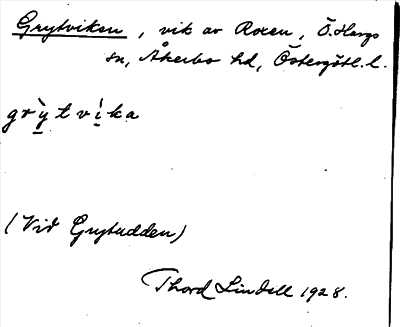 Grytviken, vik av Roxen, Ö. Hargs
sn, Åkerbo hd, Östergötl. l.
grỳtvìka
(Vid Grytudden)
Thord Lindell 1928.